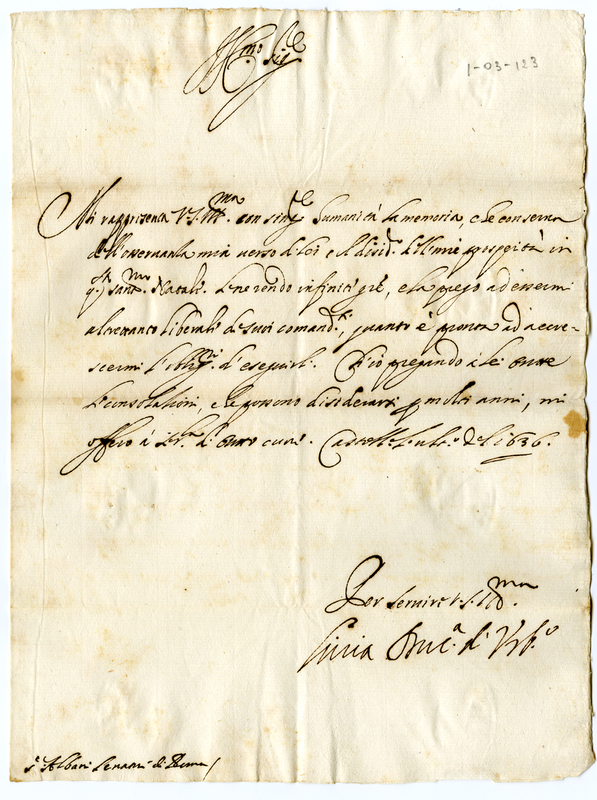 Ill.mo Sig.re
1-03-123
Mi rappresenta V.S. Ill.ma con sing.re humanità la memoria, che conserva
dell'osservanza mia verso di Lei e il disid.o dell'mie prosperità in
q.to sant.mo Natale. Le ne rendo infinite gr.e, e la prego ad essermi
altrettanto liberale de suoi comand.ti, quanto è pronta ad accre-
scermi l'oblig.ni d'eseguirli. Et io pregando à lei
le consolationi, che possono desiderarsi p molti anni, mi
offero à di cuore. Castell. Del 1636.
Per servire V.S. Ill.ma
Livia Duc.a d'Urb.o
S.r Albani Senator di Roma